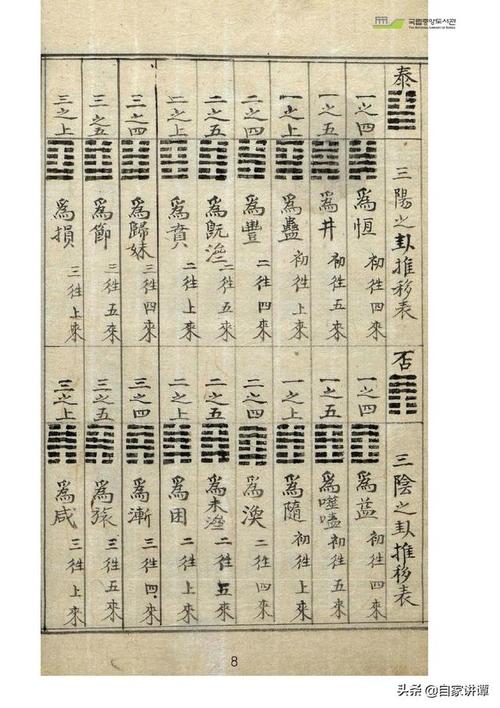 국립중앙도서관
THE NATIONAL LIBRARY OF KOREA
泰
三陽之卦推移表
一之四
爲恒
初徃四來
一之五
爲井
初徃五來
一之上
爲蠱
初徃上來
二之四
爲豐
二徃四來
二之五
爲旣濟
二徃五來
二之上
爲賁
二徃上來
三之四
爲歸妹
三徃四來
三之五
爲節
三徃五來
三之上
爲損
三徃上來
否
三陰之卦推移表
一之四
爲益
初徃四來
一之五
爲噬嗑
初徃五來
一之上
爲隨
初徃上來
二之四
爲渙
二徃四來
二之五
爲未濟
二徃五來
二之上
爲困
二徃上來
三之四
爲漸
三徃四來
三之五
爲旅
三徃五來
三之上
爲咸
三徃上來
8
头条 @自家讲谭